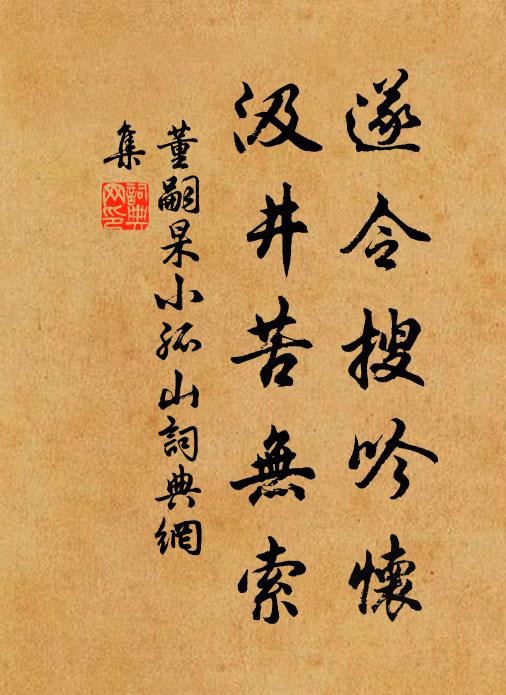 遂令搜吟懷
汲井苦無索
董嗣杲小孤山詞典網
集
詞典
网印